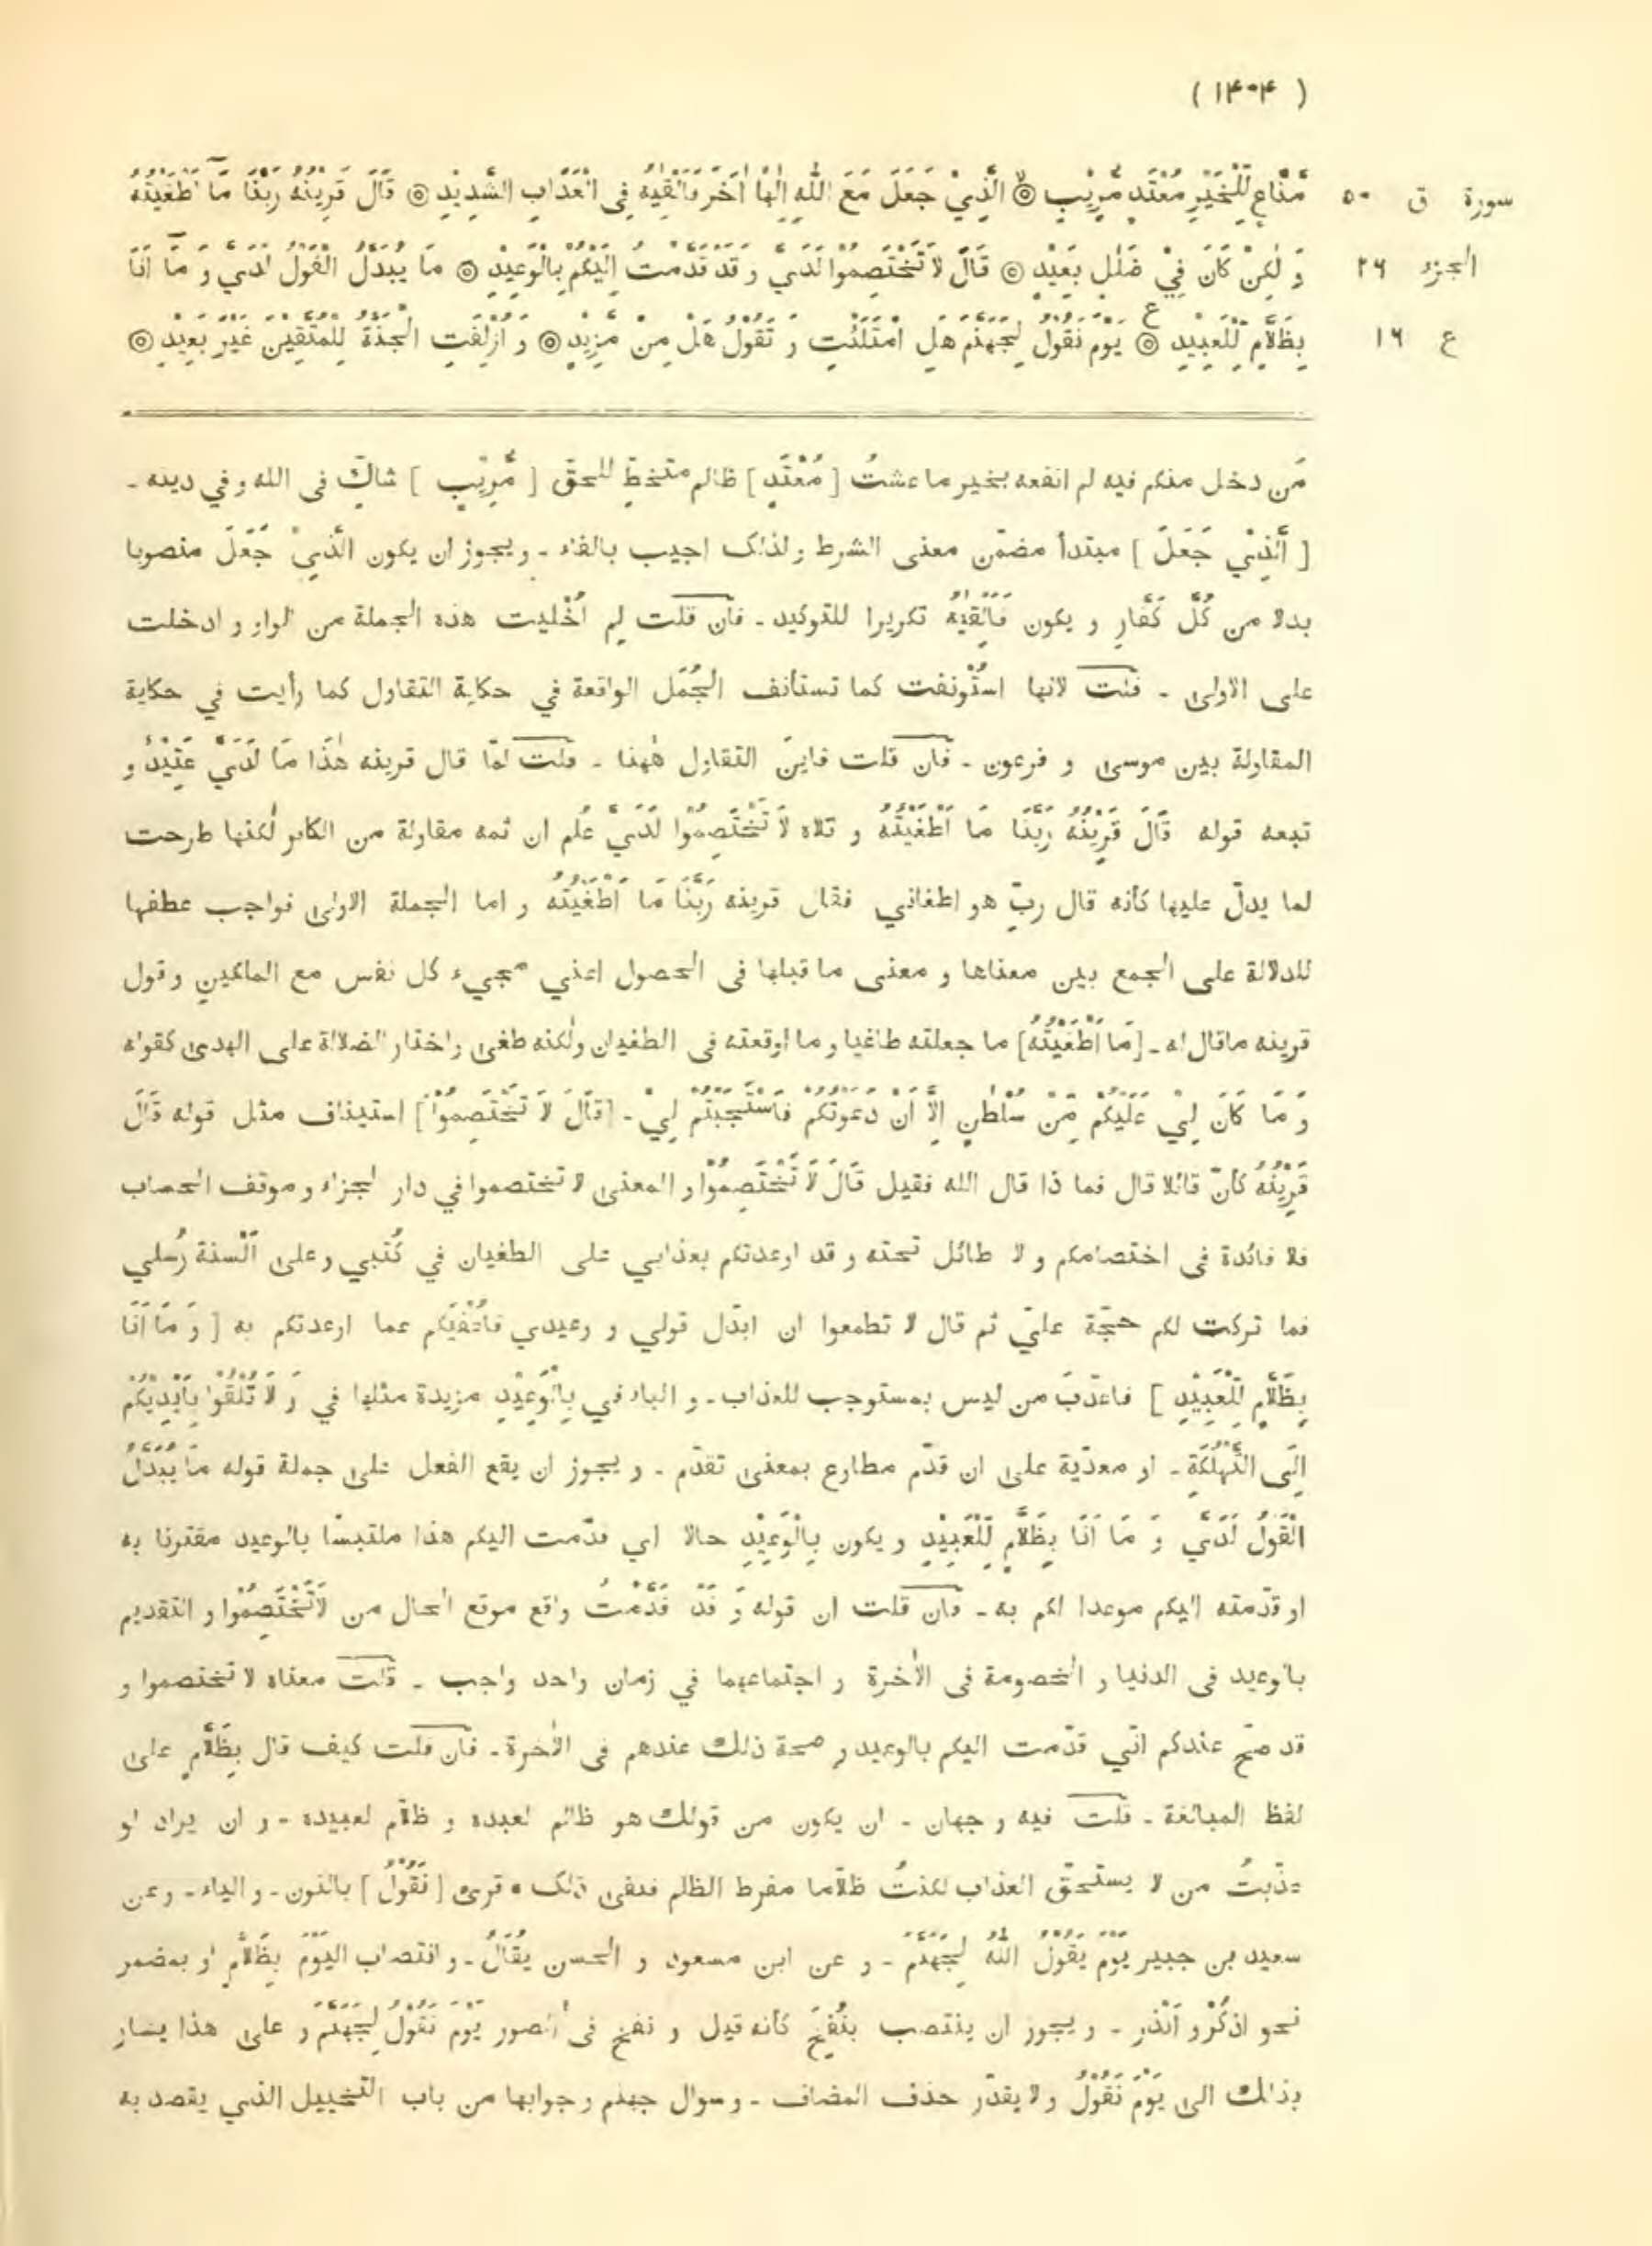 ( ۱۴۰۴ )
سورة ق ٥٠
الجزء ٢٦
ع ١٦
مَّنَّاعٍ لِّلْخَيْرِ مُعْتَدٍ مُّرِيْبٍ ۞ الَّذِيْ جَعَلَ مَعَ اللّٰهِ اِلٰهًا اٰخَرَ فَاَلْقِيٰهُ فِى الْعَذَابِ الشَّدِيْدِ ۞ قَالَ قَرِيْنُهٗ رَبَّنَا مَآ اَطْغَيْتُهٗ
وَ لٰكِنْ كَانَ فِيْ ضَلٰلٍ بَعِيْدٍ ۞ قَالَ لَا تَخْتَصِمُوْا لَدَىَّ وَ قَدْ قَدَّمْتُ اِلَيْكُمْ بِالْوَعِيْدِ ۞ مَا يُبَدَّلُ الْقَوْلُ لَدَىَّ وَ مَآ اَنَا
بِظَلَّامٍ لِّلْعَبِيْدِ ۞ ع يَوْمَ نَقُوْلُ لِجَهَنَّمَ هَلِ امْتَلَئْتِ وَ تَقُوْلُ هَلْ مِنْ مَّزِيْدٍ ۞ وَ اُزْلِفَتِ الْجَنَّةُ لِلْمُتَّقِيْنَ غَيْرَ بَعِيْدٍ ۞
مَن دخل منكم فيه لم انفعه بخير ما عشتُ [ مُعْتَدٍ ] ظالم متخطٍّ للحقّ [ مُّرِيْبٍ ] شاكٍّ فى الله و في دينه ـ
[ اَلَّذِيْ جَعَلَ ] مبتدأ مضمّن معنى الشرط و لذلك اجيب بالفاء ـ و يجوز ان يكون الَّذِيْ جَعَلَ منصوبا
بدلا من كُلَّ كَفَّارٍ و يكون فَاَلْقِيٰهُ تكريرا للتوكيد ـ فان قلت لِم اُخْليت هذه الجملة من الواو و ادخلت
على الاولى ـ قلت لانها استُونفت كما تستأنف الجُمَل الواقعة في حكاية التقاول كما رأيت في حكاية
المقاولة بين موسى و فرعون ـ فان قلت فاينَ التقاول هٰهنا ـ قلت لمّا قال قرينه هٰذَا مَا لَدَىَّ عَتِيْدٌ و
تبعه قوله قَالَ قَرِيْنُهٗ رَبَّنَا مَا اَطْغَيْتُهٗ و تلاه لَا تَخْتَصِمُوْا لَدَىَّ عُلم ان ثمه مقاولة من الكافر لٰكنها طرحت
لما يدلّ عليها كأنه قال ربِّ هو اطغاني فقال قرينه رَبَّنَا مَا اَطْغَيْتُهٗ و اما الجملة الاولى فواجب عطفها
للدلالة على الجمع بين معناها و معنى ما قبلها فى الحصول اعني مجيء كل نفس مع الملكينِ و قول
قرينه ماقال له ـ [ مَا اَطْغَيْتُهٗ ] ما جعلته طاغيا و ما اوقعته فى الطغيان و لٰكنه طغى و اختار الضلالة على الهدى كقوله
وَ مَا كَانَ لِيْ عَلَيْكُمْ مِّنْ سُلْطٰنٍ اِلَّا اَنْ دَعَوْتُكُمْ فَاسْتَجَبْتُمْ لِيْ ـ [ قَالَ لَا تَخْتَصِمُوْا ] استيناف مثل قوله قَالَ
قَرِيْنُهٗ كأنّ قائلا قال فما ذا قال الله فقيل قَالَ لَا تَخْتَصِمُوْا و المعنى لا تختصموا في دار الجزاء و موقف الحساب
فلا فائدة فى اختصامكم و لا طائل تحته و قد اوعدتكم بعذابي على الطغيان في كُتبي و على اَلْسنة رُسلي
فما تركت لكم حجّة عليّ ثم قال لا تطمعوا ان ابدّل قولي و وعيدي فأُعْفيَكم عما اوعدتكم به [ وَ مَا اَنَا
بِظَلَّامٍ لِّلْعَبِيْدِ ] فاعذّبَ من ليس بمستوجب للعذاب ـ و الباء في بِالْوَعِيْدِ مزيدة مثلها في وَ لَا تُلْقُوْا بِاَيْدِيْكُمْ
اِلَى التَّهْلُكَةِ ـ او معدّية على ان قدّم مطاوع بمعنى تقدّم ـ و يجوز ان يقع الفعل على جملة قوله مَا يُبَدَّلُ
الْقَوْلُ لَدَىَّ وَ مَا اَنَا بِظَلَّامٍ لِّلْعَبِيْدِ و يكون بِالْوَعِيْدِ حالا اي قدّمت اليكم هذا ملتبسًا بالوعيد مقترنا به
او قدّمته اليكم موعدا لكم به ـ فان قلت ان قوله وَ قَدْ قَدَّمْتُ واقع موقع الحال من لَا تَخْتَصِمُوْا و التقديم
بالوعيد فى الدنيا و الخصومة فى الأٰخرة و اجتماعهما في زمان واحد واجب ـ قلت معناه لا تختصموا و
قد صحّ عندكم انّي قدّمت اليكم بالوعيد و صحة ذلك عندهم فى الأٰخرة ـ فان قلت كيف قال بِظَلَّامٍ على
لفظ المبالغة ـ قلت فيه وجهان ـ ان يكون من قولك هو ظالم لعبده و ظلّام لعبيده ـ و ان يراد لو
عذّبتُ من لا يستحقّ العذاب لكنتُ ظلّاما مفرط الظلم فنفى ذلك ٭ قرى [ نَقُوْلُ ] بالنون ـ و الياء ـ و عن
سعيد بن جبير يَوْمَ يَقُوْلُ اللّٰهُ لِجَهَنَّمَ ـ و عن ابن مسعود و الحسن يُقَالُ ـ و انتصاب اليَوْمَ بِظَلَّامٍ او بمضمر
نحو اذكُرْ و اَنْذر ـ و يجوز ان ينتصب بنُفِخَ كأنه قيل و نفخ فى الصور يَوْمَ نَقُوْلُ لِجَهَنَّمَ و على هذا يشار
بذلك الى يَوْمَ نَقُوْلُ و لا يقدّر حذف المضاف ـ و سوال جهنم و جوابها من باب التخييل الذي يقصد به